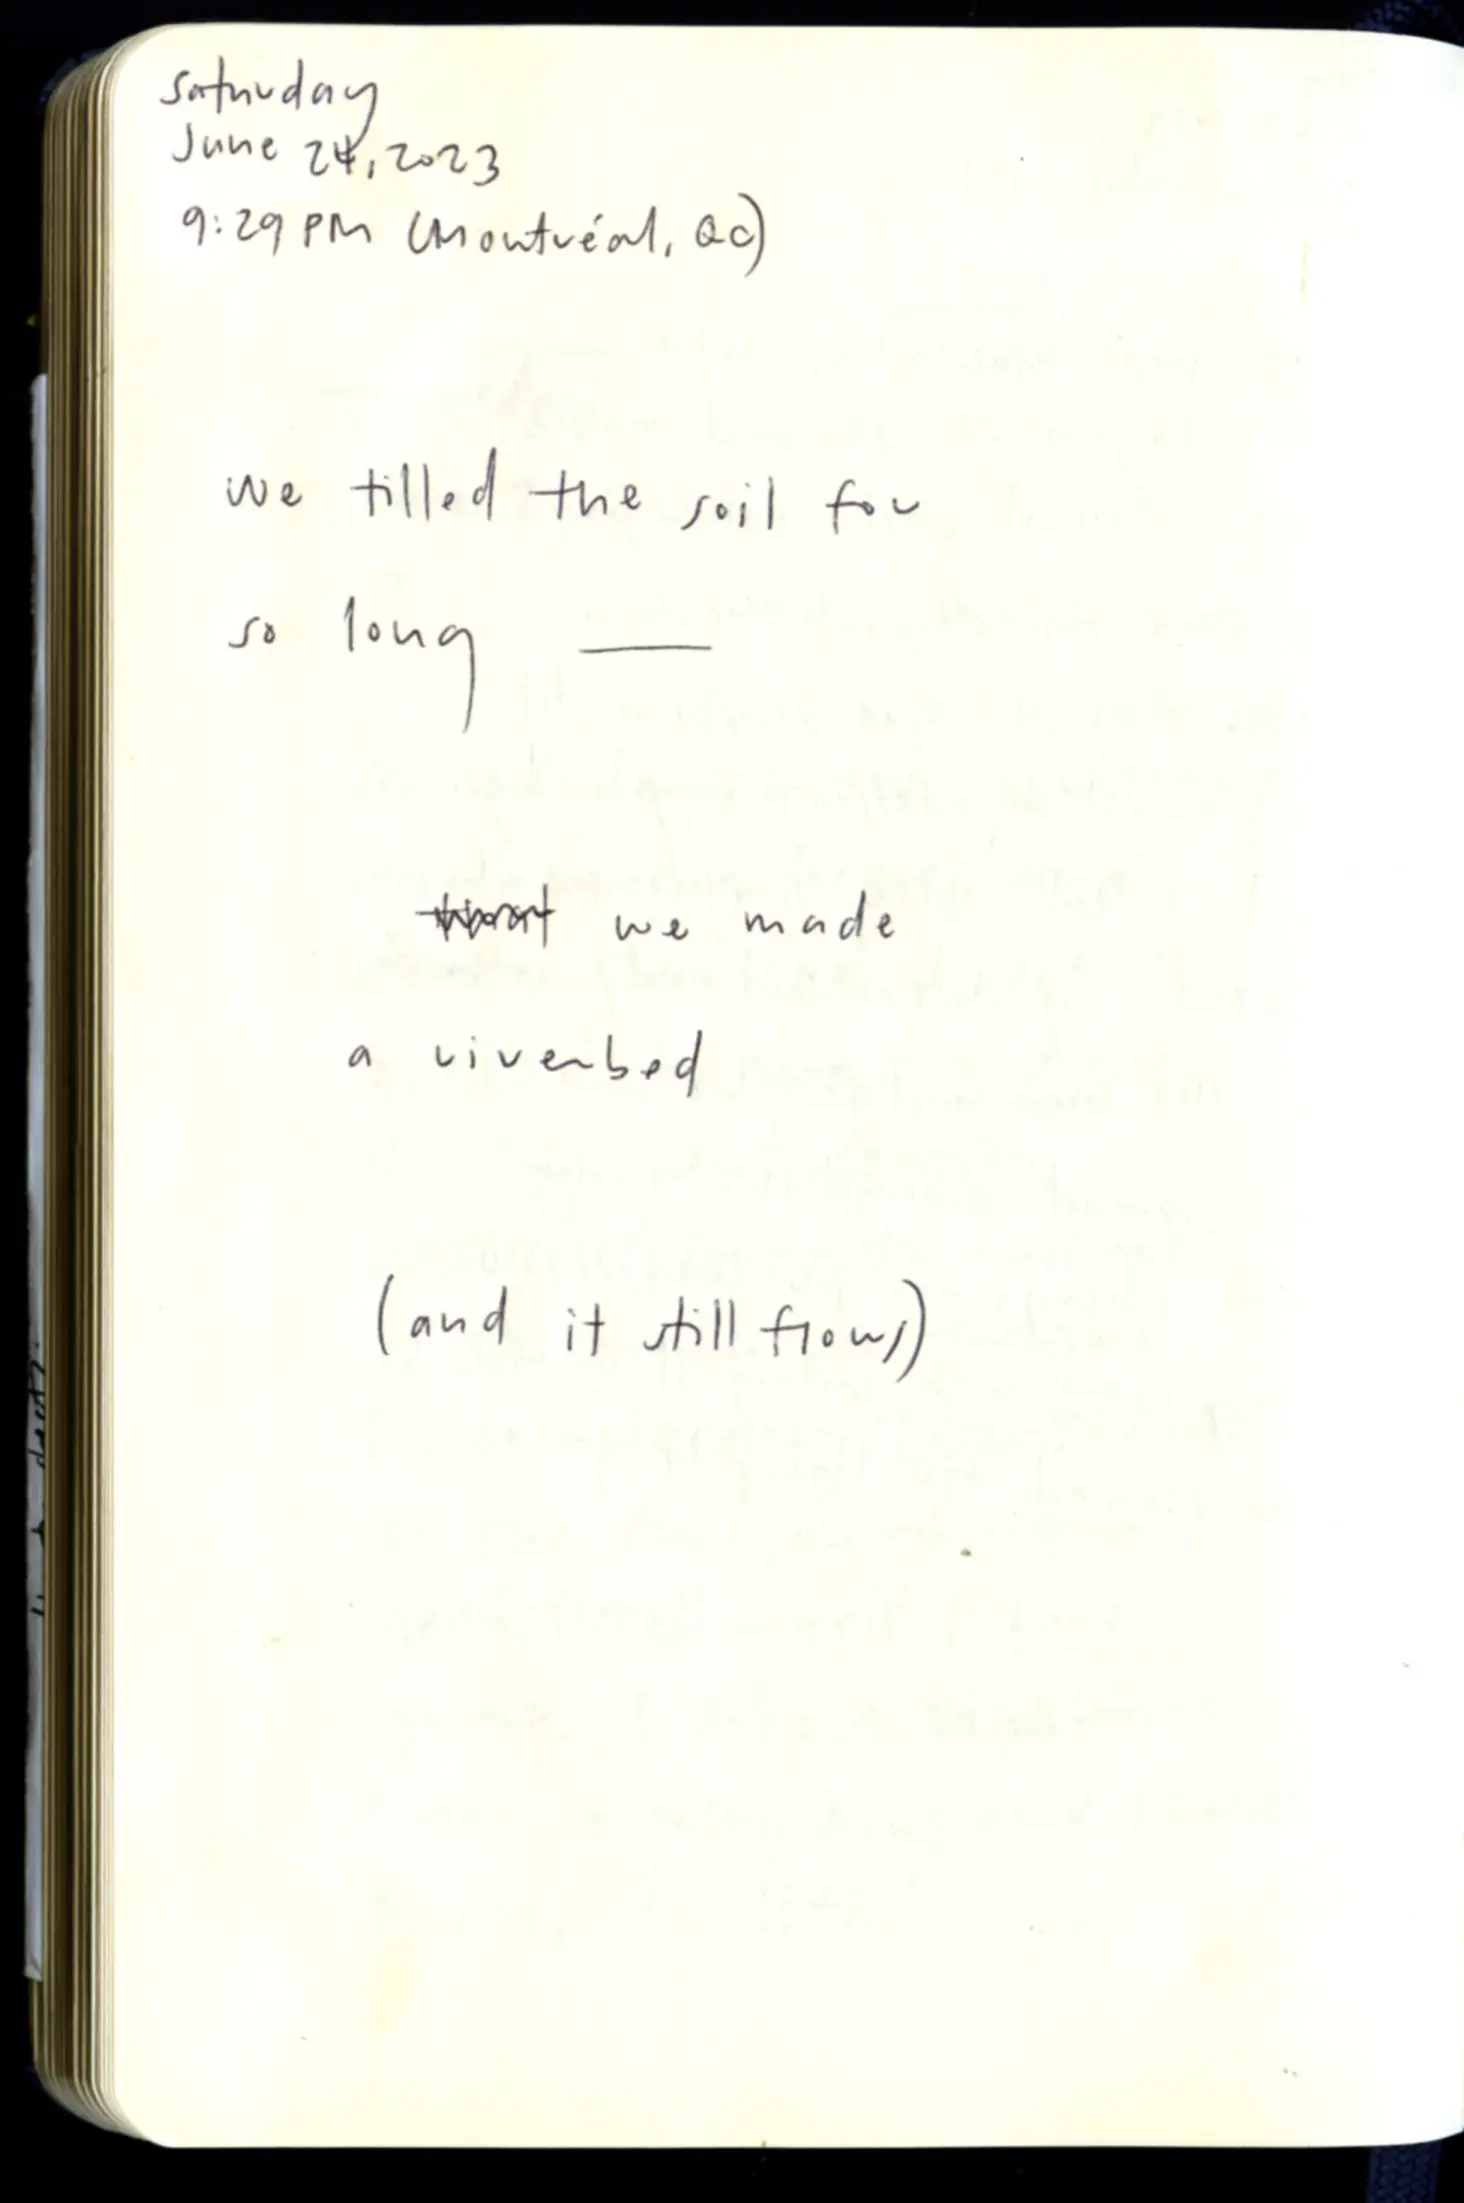 Saturday
June 24, 2023
9:29 PM (Montréal, QC)
we tilled the soil for
so long —
we made
a riverbed
(and it still flows)